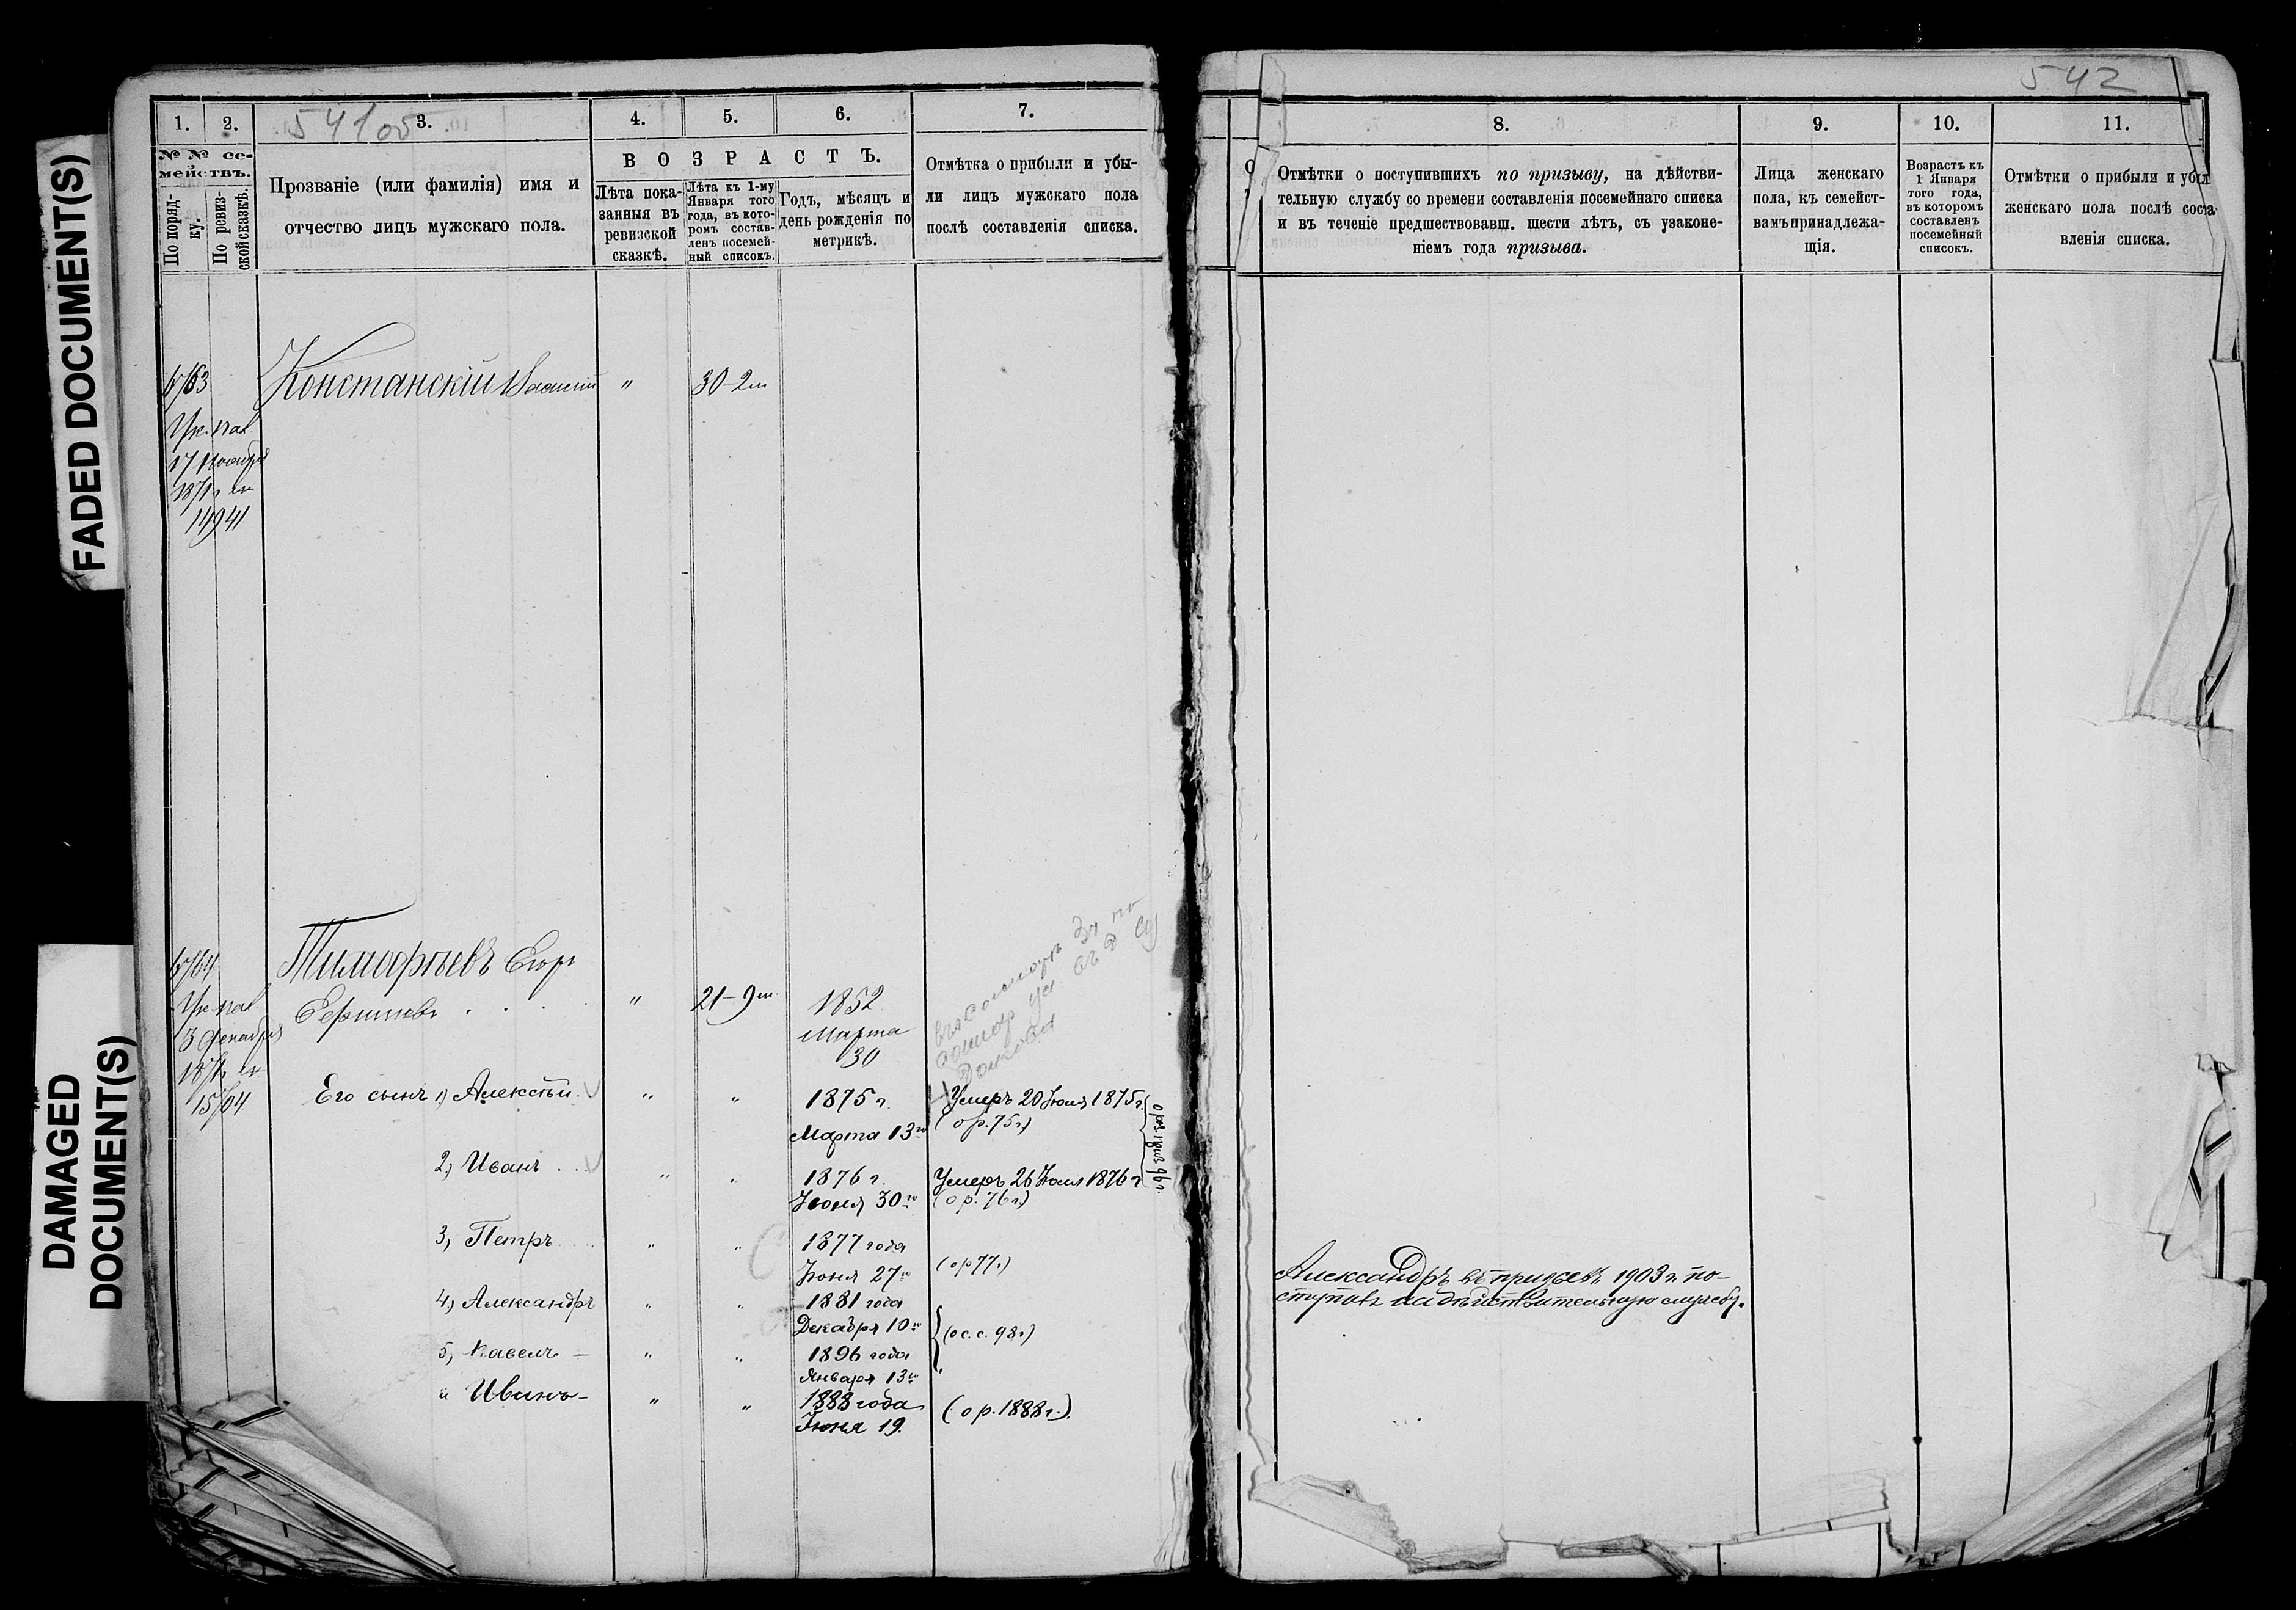 FADED DOCUMENT(S)
DAMAGED
DOCUMENT(S)
541об
1.
2.
3.
4.
5.
6.
7.
№ № се-
мействъ.
По поряд-
ку.
По ревиз-
ской сказкѣ.
Прозваніе (или фамилія) имя и
отчество лицъ мужскаго пола.
ВОЗРАСТЪ.
Лѣта пока-
занныя въ
ревизской
сказкѣ.
Лѣта къ 1-му
Января того
года, въ кото-
ромъ состав-
ленъ посемей-
ный списокъ.
Годъ, мѣсяцъ и
день рожденія по
метрикѣ.
Отмѣтка о прибыли и убы-
ли лицъ мужскаго пола
послѣ составленія списка.
Констанскій Василій " 30-2м
Ук. пал
17 Ноября
14941
Тимофѣевъ Егоръ
" 21-9м. 1852
Марта
30
Ук. пал
3 Декабря
Его сынъ 1) Алексѣй " " 1875 г. Умеръ 20 Іюля 1875 г.
Марта 13го (о р. 75 г.)
2, Иванъ " " 1876 г. Умеръ 26 Іюля 1876 г.
30го (о р. 76 г.)
3, Петръ " " 1877 года
Іюня 27го (о р 77 г.)
4, Александръ " " 1881 года
Декабря 10го
(о с. с. 98 г.)
5, Павелъ — " " 1896 года
Января 13го "
и Иванъ — " " 1888 года (о р. 1888 г.)
Іюня 19.
542
8.
9.
10.
11.
Отмѣтки о поступившихъ по призыву, на дѣйстви-
тельную службу со времени составленія посемейнаго списка
и въ теченіе предшествовавш. шести лѣтъ, съ узаконе-
ніемъ года призыва.
Лица женскаго
пола, къ семейст-
вамъ принадлежа-
щія.
Возрастъ къ
1 Января
того года,
въ которомъ
составленъ
посемейный
списокъ.
Отмѣтки о прибыли и убыл
женскаго пола послѣ соста
вленія списка.
Александръ въ призывъ 1903 г. по-
ступилъ на дѣйствительную службу.